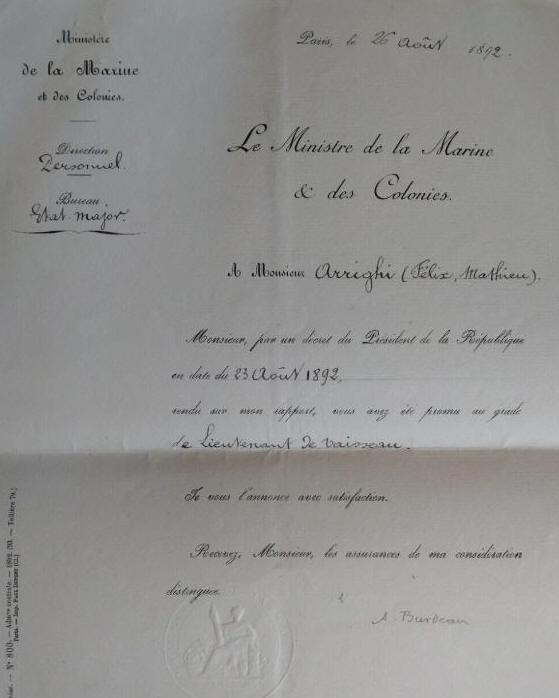 Ministère
de la Marine
et des Colonies.
Direction
Personnel.
Bureau
Etat-major.
Paris, le 26 Août 1892.
Le Ministre de la Marine
& des Colonies.
A Monsieur Arrighi (Félix, Mathieu).
Monsieur, par un décret du Président de la République
en date du 23 Août 1892,
rendu sur mon rapport, vous avez été promu au grade
de Lieutenant de vaisseau.
Je vous l'annonce avec satisfaction.
Recevez, Monsieur, les assurances de ma considération
distinguée.
A. Burdeau
N° 800. — Admon centrale. — 1892. — Tellière
Paris. — Imp.